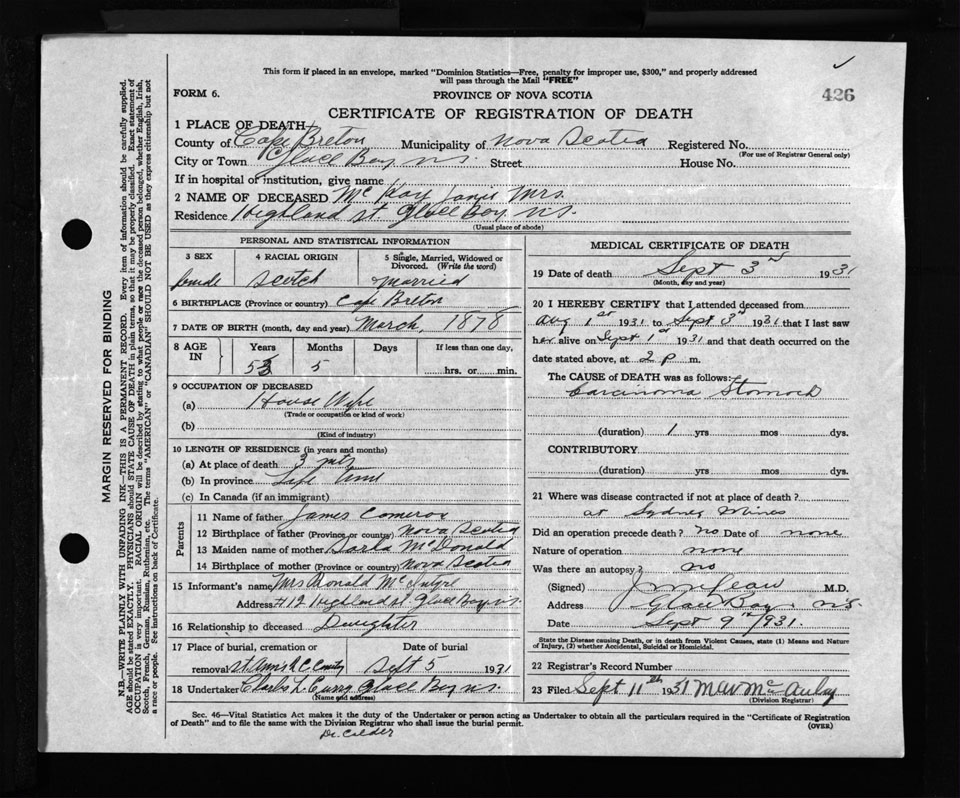 This form if placed in an envelope, marked "Dominion Statistics—Free, penalty for improper use, $300," and properly addressed
will pass through the Mail "FREE"
426
FORM 6.
PROVINCE OF NOVA SCOTIA
CERTIFICATE OF REGISTRATION OF DEATH
1 PLACE OF DEATH—
County of Cape Breton Municipality of Nova Scotia Registered No.
(For use of Registrar General only)
City or Town Glace Bay N.S. Street House No.
If in hospital of institution, give name
2 NAME OF DECEASED McKay Mrs.
Residence Highland st. Glace Bay N.S.
(Usual place of abode)
PERSONAL AND STATISTICAL INFORMATION
3 SEX 4 RACIAL ORIGIN 5 Single, Married, Widowed or
Divorced. (Write the word)
female scotch married
6 BIRTHPLACE (Province or country) Cape Breton
7 DATE OF BIRTH (month, day and year) March, 1878
8 AGE IN Years Months Days If less than one day,
53 5 hrs. or min.
9 OCCUPATION OF DECEASED
(a) House Wife
(Trade or occupation or kind of work)
(b)
(Kind of industry)
10 LENGTH OF RESIDENCE (in years and months)
(a) At place of death 3 mts
(b) In province Life time
(c) In Canada (if an immigrant)
Parents
11 Name of father James Cameron
12 Birthplace of father (Province or country) Nova Scotia
13 Maiden name of mother Sarla McDonald
14 Birthplace of mother (Province or country) Nova Scotia
15 Informant's name Mrs Ronald McIntyre
Address #12 Highland st Glace Bay N.S.
16 Relationship to deceased Daughter
17 Place of burial, cremation or Date of burial
removal St Anns R.C. Sept 5 1931
18 Undertaker Charles L. Curry Glace Bay N.S.
(Name and address)
MEDICAL CERTIFICATE OF DEATH
19 Date of death Sept 3rd 1931
(Month, day and year)
20 I HEREBY CERTIFY that I attended deceased from
Aug 1st 1931 to Sept 3rd 1931 that I last saw
her alive on Sept 1st 1931 and that death occurred on the
date stated above, at 2 P m.
The CAUSE of DEATH was as follows:
Carcinoma Stomach
(duration) 1 yrs mos dys.
CONTRIBUTORY
(duration) yrs mos dys.
21 Where was disease contracted if not at place of death?
at Sydney Mines
Did an operation precede death? no Date of none
Nature of operation none
Was there an autopsy? no
(Signed) M.D.
Address Glace Bay N.S.
Date Sept 9th/931.
State the Disease causing Death, or in death from Violent Causes, state (1) Means and Nature
of Injury, (2) whether Accidental, Suicidal or Homicidal.
22 Registrar's Record Number
23 Filed Sept 11th 1931 McAulay
(Division Registrar)
Sec. 46—Vital Statistics Act makes it the duty of the Undertaker or person acting as Undertaker to obtain all the particulars required in the "Certificate of Registration
of Death" and to file the same with the Division Registrar who shall issue the burial permit.
(OVER)
Dr. Calder
MARGIN RESERVED FOR BINDING
N.B.—WRITE PLAINLY WITH UNFADING INK—THIS IS A PERMANENT RECORD. Every item of information should be carefully supplied.
AGE should be stated EXACTLY. PHYSICIANS should STATE CAUSE OF DEATH in plain terms, so that it may be properly classified. Exact statement of
OCCUPATION is very important. RACIAL ORIGIN will be described by stating to what people or race the deceased person belonged, whether English, Irish,
Scotch, French, German, Russian, Ruthenian, etc. The terms "AMERICAN" or "CANADIAN" SHOULD NOT BE USED as they express citizenship but not
a race or people. See instructions on back of Certificate.